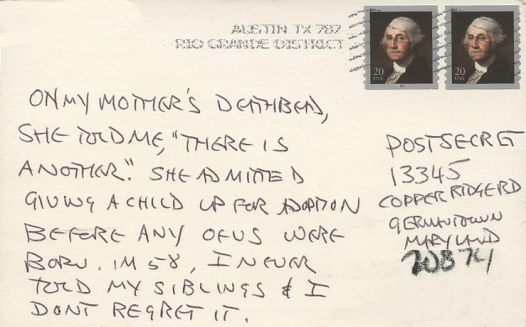 AUSTIN TX 787
RIO GRANDE DISTRICT
20
USA
20
USA
ON MY MOTHER'S DEATHBED,
SHE TOLD ME, "THERE IS
ANOTHER". SHE ADMITTED
GIVING A CHILD UP FOR ADOPTION
BEFORE ANY OF US WERE
BORN. IM 58, I NEVER
TOLD MY SIBLINGS & I
DONT REGRET IT.
POSTSECRET
13345
COPPER RIDGE RD
GERMANTOWN
MARYLAND
20874